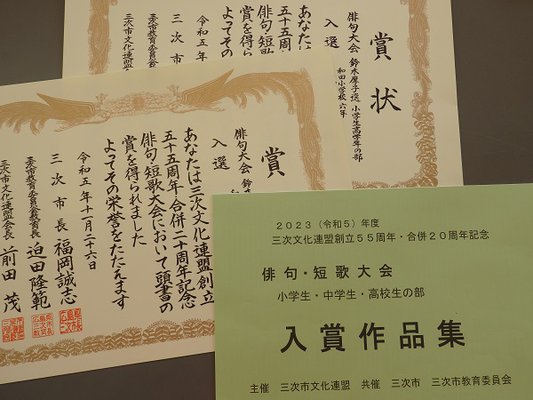 賞状
俳句大会 鈴木厚子選 小学生高学年の部
和田小学校 六年
入選
あなたは
五十五周年
俳句・短歌
賞を得ら
よってその
令和五年
三次市
賞
俳句大会 鈴木
入選
あなたは三次文化連盟創立
五十五周年・合併二十周年記念
俳句・短歌大会において頭書の
賞を得られました
よってその栄誉をたたえます
令和五年十一月二十六日
三次市長 福岡誠志
三次市教育委員会教育長 迫田隆範
三次市文化連盟会長 前田茂
2023(令和5)年度
三次文化連盟創立55周年・合併20周年記念
俳句・短歌大会
小学生・中学生・高校生の部
入賞作品集
主催 三次市文化連盟 共催 三次市 三次市教育委員会